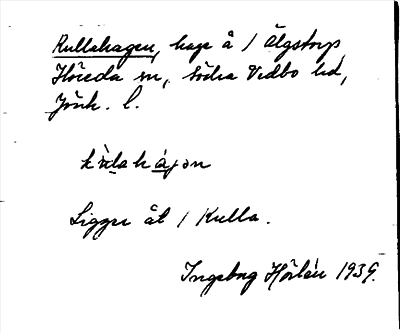 Kullahagen, hage å 1 Älgstorp,
Höreda sn, Södra Vedbo hd,
Jönk. l.
Ligger åt 1 Kulla.
Ingeborg Hörlén 1939.